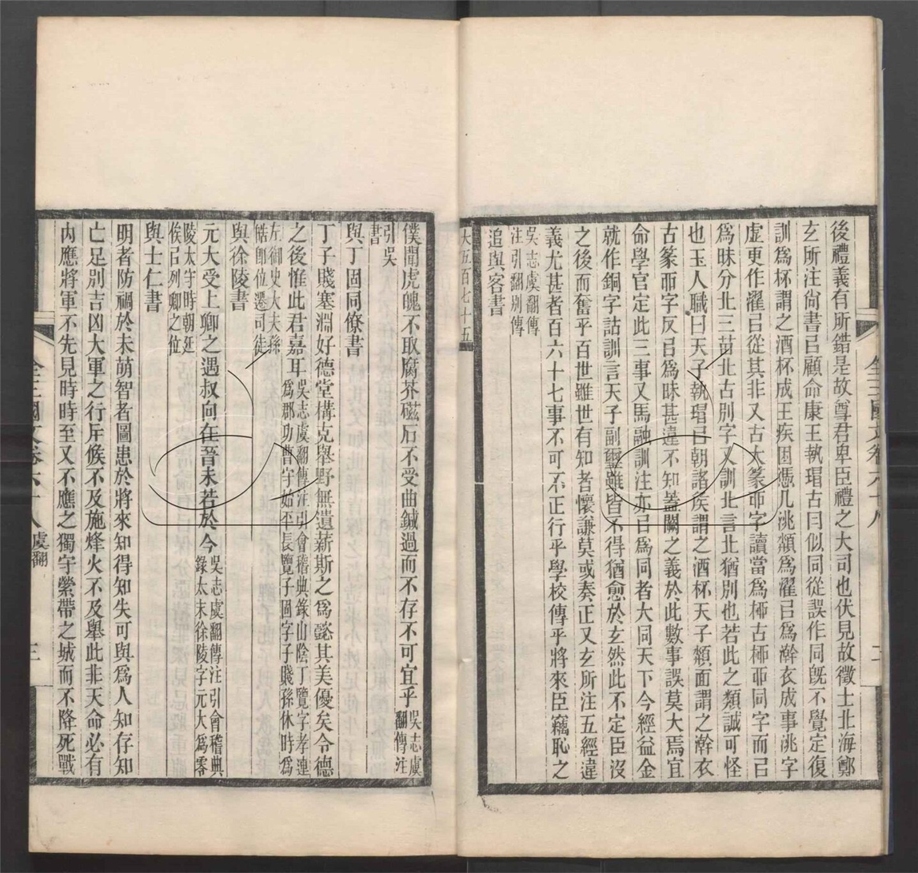 後禮義有所錯是故尊君卑臣禮之大司也伏見故徵士北海鄭
玄所注尚書㠯顧命康王執瑁古冃似同從誤作同旣不覺定復
訓爲杯謂之酒杯成王疾困憑几洮頮爲濯㠯爲澣衣成事洮字
虛更作濯㠯從其非又古大篆丣字讀當爲桺古桺丣同字而㠯
爲昧分北三苗北古別字又訓北言北猶別也若此之類誠可怪
也玉人職曰天子執瑁㠯朝諸侯謂之酒杯天子頮面謂之澣衣
古篆丣字反㠯爲昧甚違不知蓋闕之義於此數事誤莫大焉宜
命學官定此三事又馬融訓注亦㠯爲同者大同天下今經益金
就作銅字詁訓言天子副璽雖皆不得猶愈於玄然此不定臣沒
之後而奮乎百世雖世有知者懷謙莫或奏正又玄所注五經違
義尤甚者百六十七事不可不正行乎學校傳乎將來臣竊恥之
吳志虞翻傳
注引翻別傳
追與客書
大五百七十五
全三國文卷六十八
二
僕聞虎魄不取腐芥磁石不受曲鍼過而不存不可宜乎吳志虞
翻傳注
引吳
書
與丁固同僚書
丁子賤塞淵好德堂構克舉野無遺薪斯之爲懿其美優矣令德
之後惟此君嘉耳吳志虞翻傳注引會稽典錄山陰丁覽字孝連
爲郡功曹守始平長覽子固字子賤孫休時爲
左御史大夫孫
皓卽位遷司徒
與徐陵書
元大受上卿之遇叔向在晉未若於今吳志虞翻傳注引會稽典
錄太末徐陵字元大爲零
陵太守時朝廷
俟㠯列卿之位
與士仁書
明者防禍於未萌智者圖患於將來知得知失可與爲人知存知
亡足別吉凶大軍之行斥候不及施烽火不及舉此非天命必有
內應將軍不先見時時至又不應之獨守縈帶之城而不降死戰
全三國文卷六十八 虞翻
三